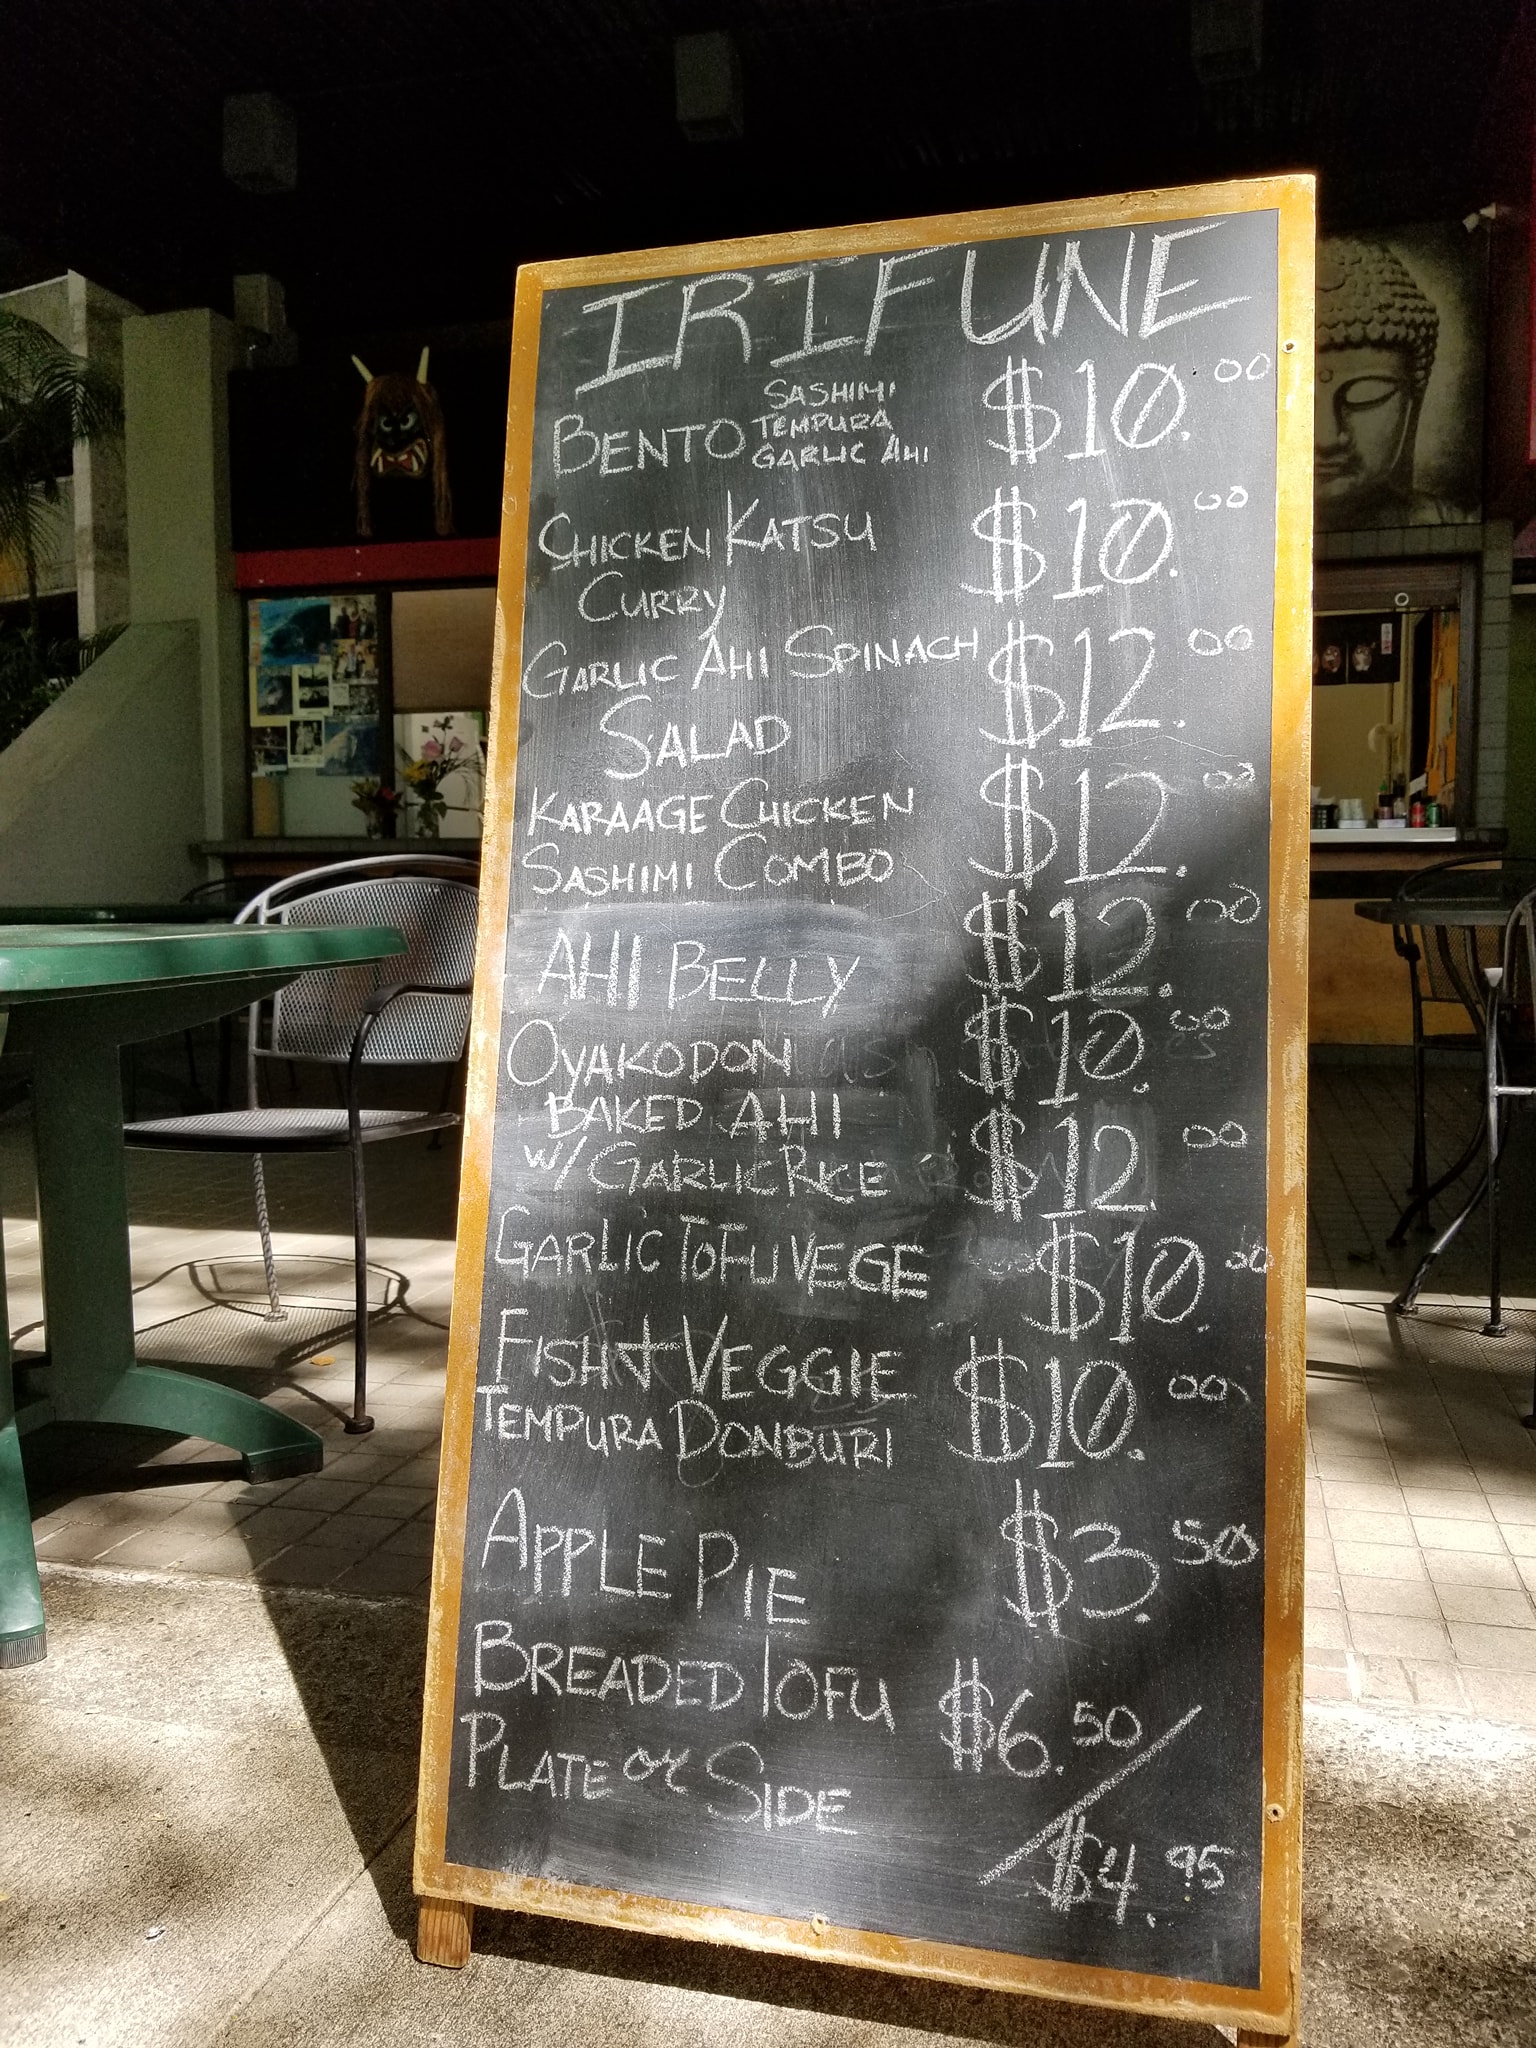 IRIFUNE
BENTO SASHIMI TEMPURA GARLIC AHI $10.00
CHICKEN KATSU $10.00
CURRY
GARLIC AHI SPINACH $12.00
SALAD
KARAAGE CHICKEN $12.00
SASHIMI COMBO
AHI BELLY $12.00
OYAKODON $10.00
BAKED AHI $12.00
W/ GARLIC RICE
GARLIC TOFU VEGE $10.00
FISH + VEGGIE $10.00
TEMPURA DONBURI
APPLE PIE $3.50
BREADED TOFU $6.50 /
PLATE or SIDE
$4.95